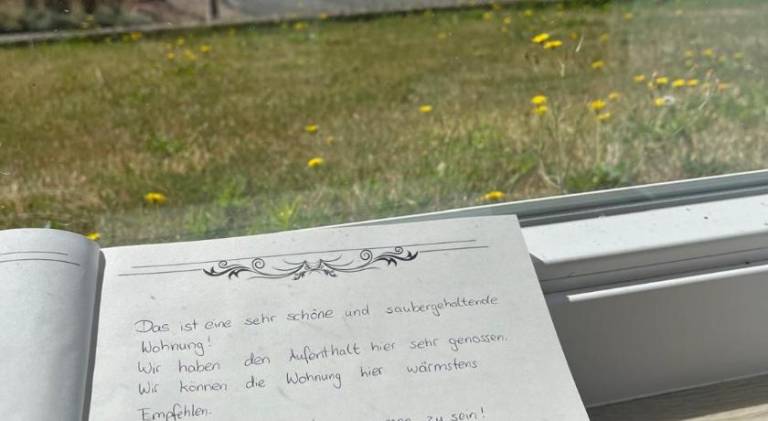 Das ist eine sehr schöne und saubergehaltende
Wohnung!
Wir haben den Aufenthalt hier sehr genossen.
Wir können die Wohnung hier wärmstens
Empfehlen.
zu sein!